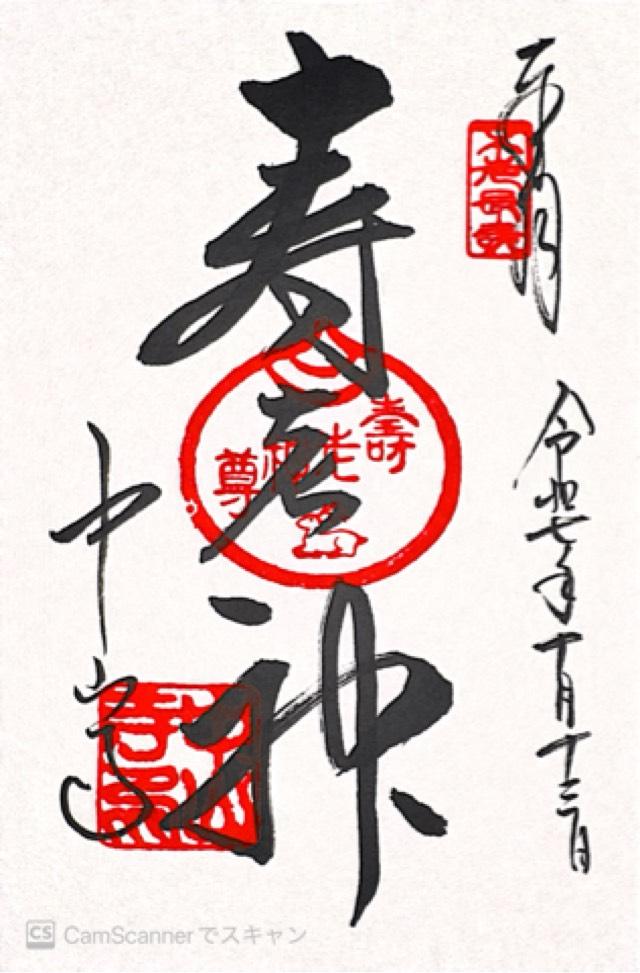 奉拝
令和七年十月
寿老神
壽老
尊
中山寺
CS CamScannerでスキャン